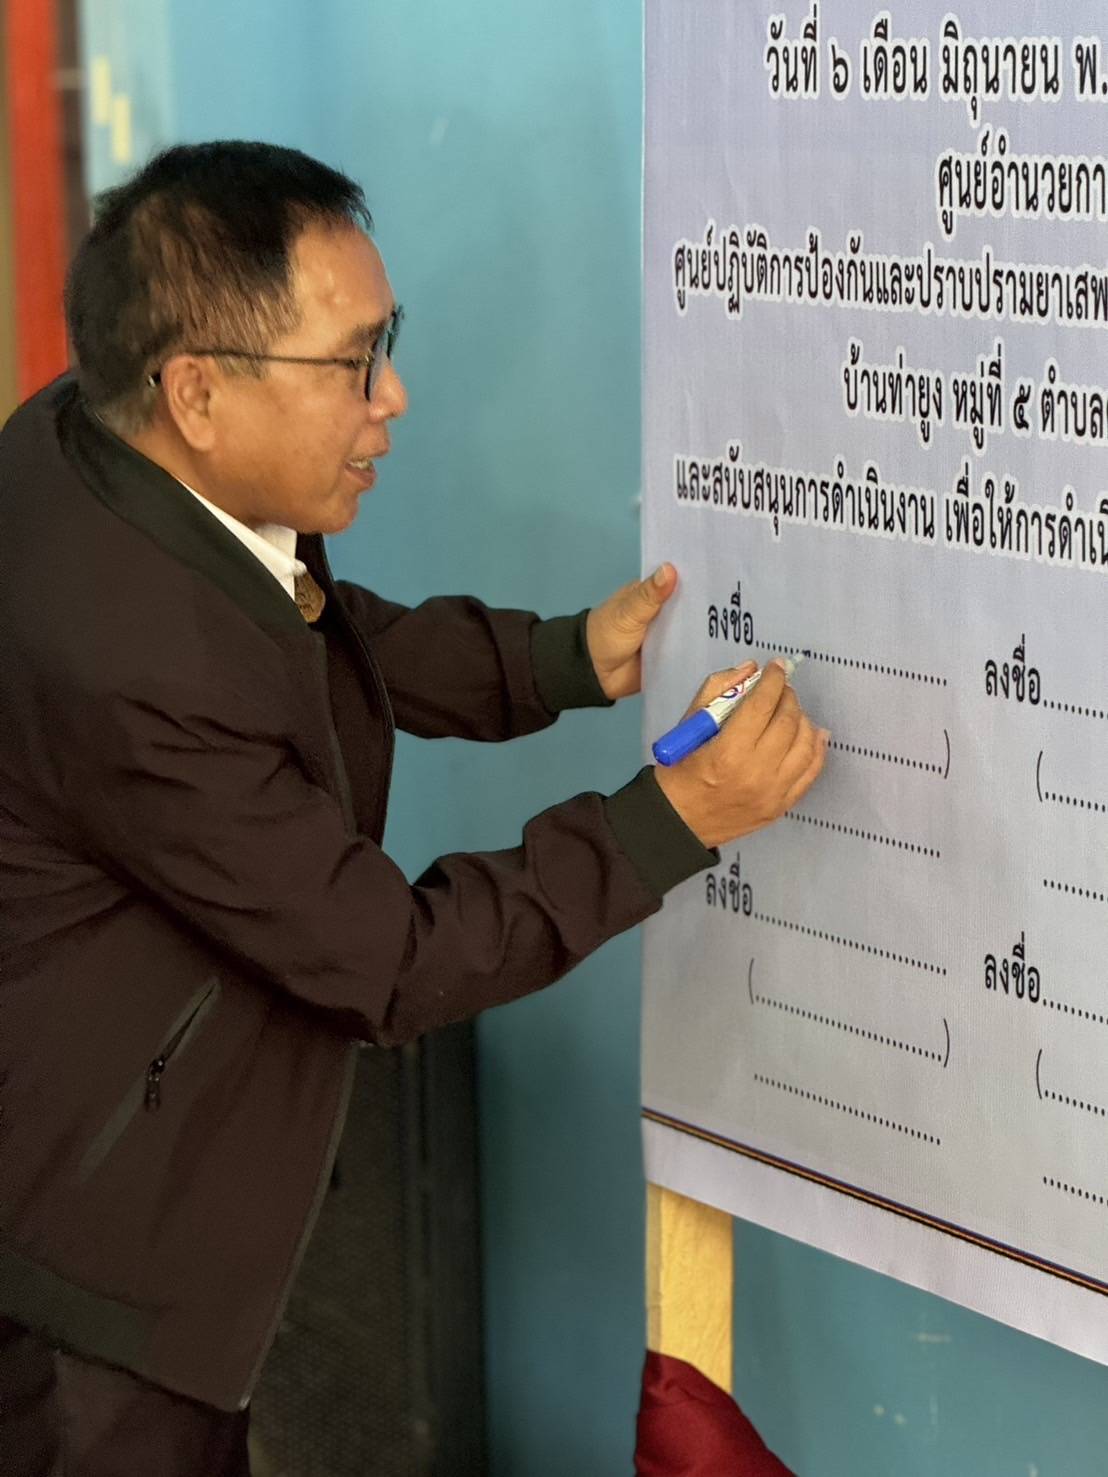 วันที่ ๖ เดือน มิถุนายน พ.
ศูนย์อำนวยกา
ศูนย์ปฏิบัติการป้องกันและปราบปรามยาเสพ
บ้านท่ายูง หมู่ที่ ๕ ตำบล
และสนับสนุนการดำเนินงาน เพื่อให้การดำเนิ
ลงชื่อ.............................. ลงชื่อ..........
..................) (..........
.................... ..........
ลงชื่อ.............................. ลงชื่อ..........
(..............................) (..........
.............................. ..........